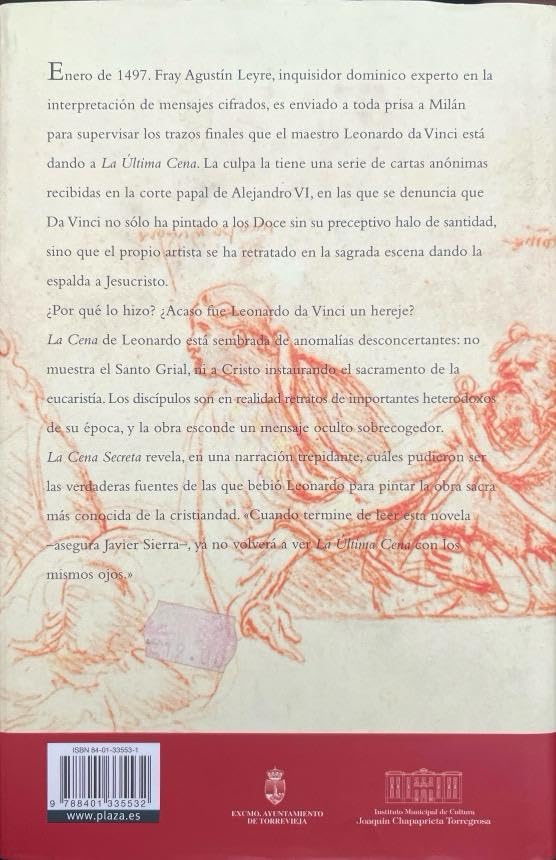 Enero de 1497. Fray Agustín Leyre, inquisidor dominico experto en la
interpretación de mensajes cifrados, es enviado a toda prisa a Milán
para supervisar los trazos finales que el maestro Leonardo da Vinci está
dando a La Última Cena. La culpa la tiene una serie de cartas anónimas
recibidas en la corte papal de Alejandro VI, en las que se denuncia que
Da Vinci no sólo ha pintado a los Doce sin su preceptivo halo de santidad,
sino que el propio artista se ha retratado en la sagrada escena dando la
espalda a Jesucristo.
¿Por qué lo hizo? ¿Acaso fue Leonardo da Vinci un hereje?
La Cena de Leonardo está sembrada de anomalías desconcertantes: no
muestra el Santo Grial, ni a Cristo instaurando el sacramento de la
eucaristía. Los discípulos son en realidad retratos de importantes heterodoxos
de su época, y la obra esconde un mensaje oculto sobrecogedor.
La Cena Secreta revela, en una narración trepidante, cuáles pudieron ser
las verdaderas fuentes de las que bebió Leonardo para pintar la obra sacra
más conocida de la cristiandad. «Cuando termine de leer esta novela
–asegura Javier Sierra–, ya no volverá a ver La Última Cena con los
mismos ojos.»
ISBN 84-01-33553-1
9 788401 335532
www.plaza.es
EXCMO. AYUNTAMIENTO
DE TORREVIEJA
Instituto Municipal de Cultura
Joaquín Chapaprieta Torregrosa